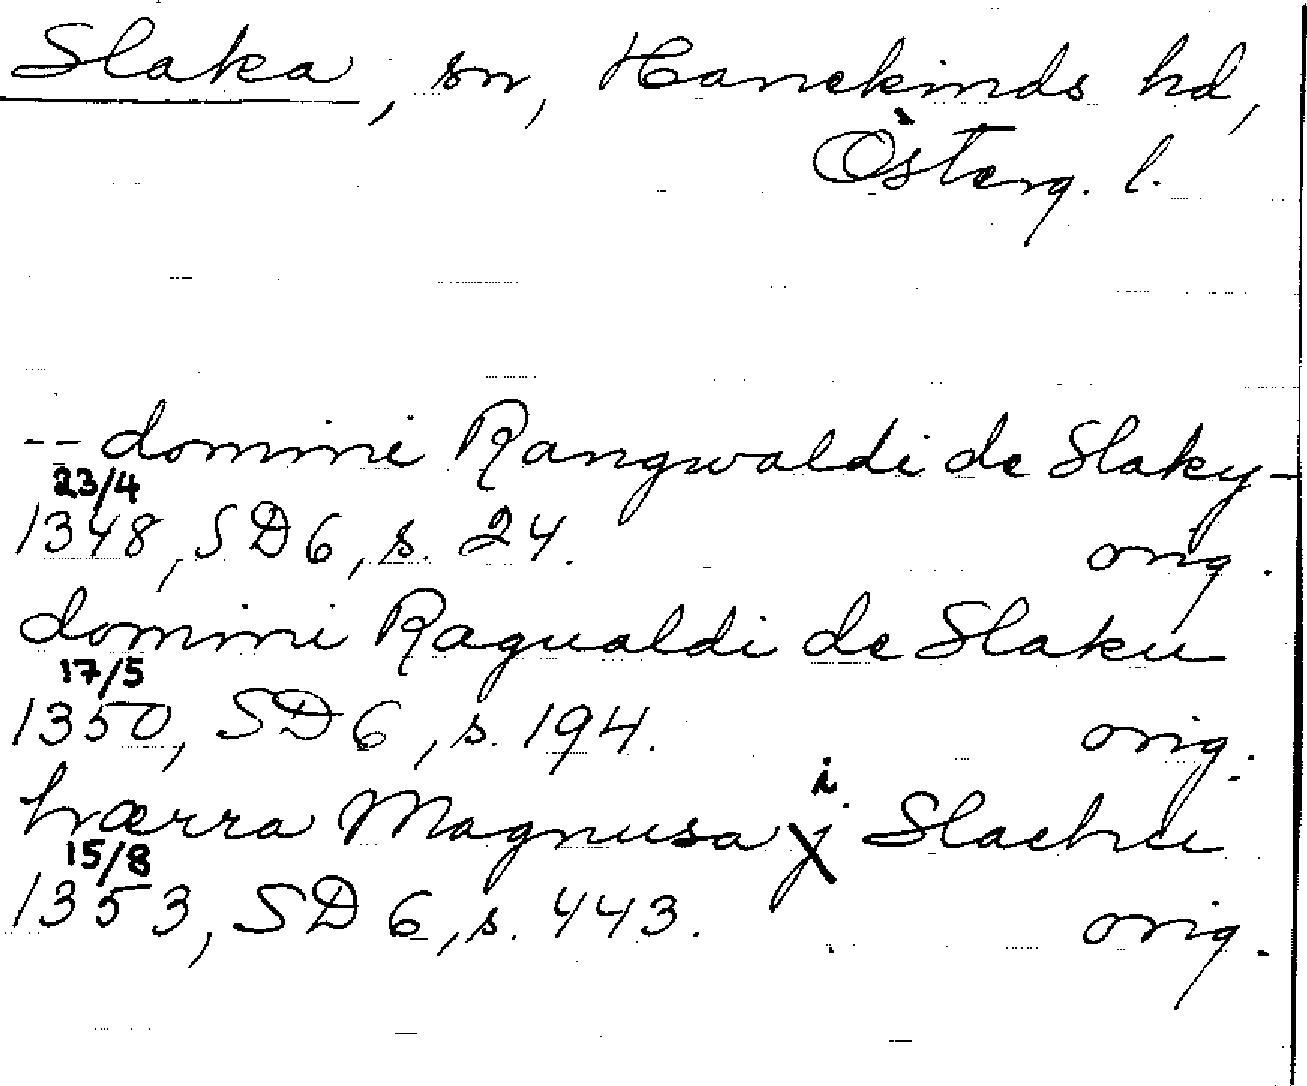 Slaka, sn, Hanekinds hd,
Österg. l.
-- domini Rangwaldi de Slaky -
23/4
1348, SD 6, s. 24. orig.
domini Ragualdi de Slaku
17/5
1350, SD 6, s. 194. orig.
i
hærra Magnusa j Slachu
15/8
1353, SD 6, s. 443. orig.